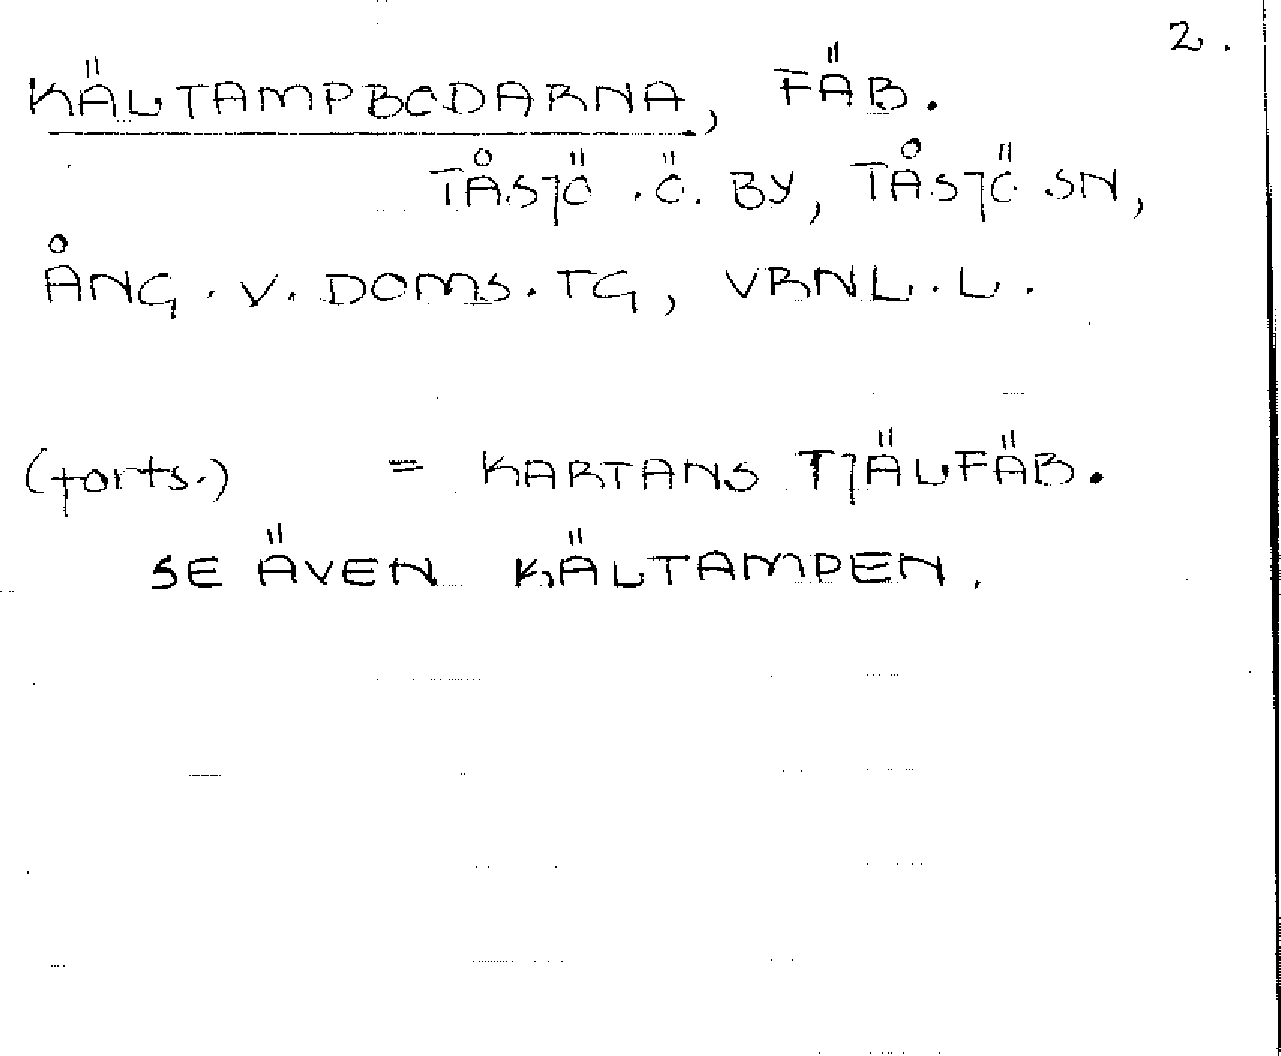 2.
KÄLTAMPBODARNA, FÄB.
TÅSJÖ .Ö. BY, TÅSJÖ SN,
ÅNG. V. DOMS. TG, VRNL. L.
(forts.) = KARTANS TJÄLFÄB.
SE ÄVEN KÄLTAMPEN.